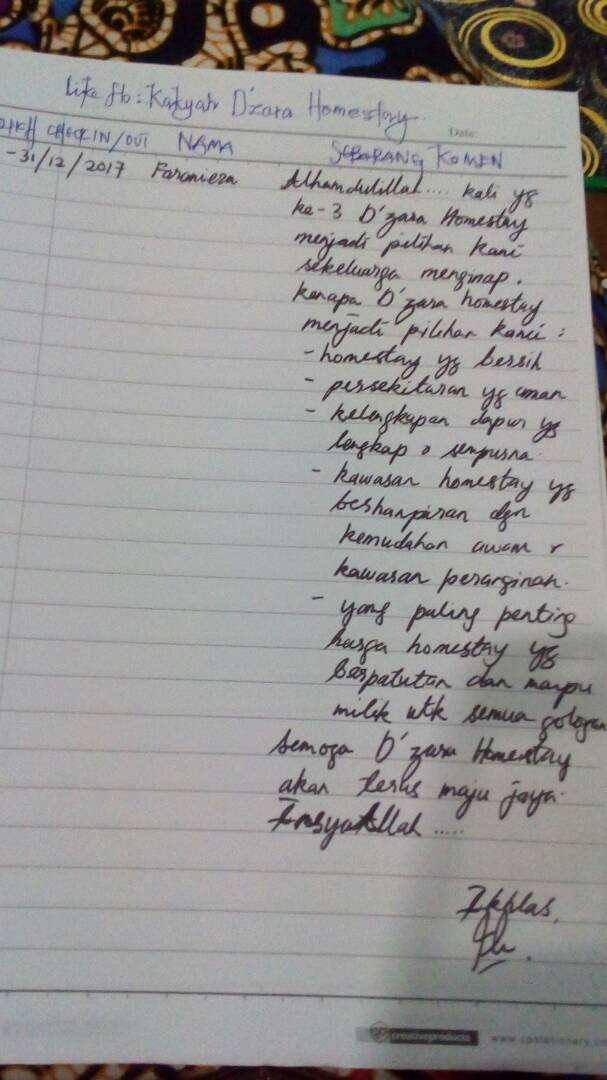 Like fb : Kakyah D'zara Homestay
Date:
CHECK IN/OUT NAMA SEBARANG KOMEN
-31/12/2017 Faranieza Alhamdulillah.... kali yg
ke-3 D'zara Homestay
menjadi pilihan kami
sekeluarga menginap.
kenapa D'zara homestay
menjadi pilihan kami :
- homestay yg bersih
- persekitaran yg aman
- kelengkapan dapur yg
lengkap & sempurna.
- kawasan homestay yg
berhampiran dgn
kemudahan awam &
kawasan peranginan.
- yang paling penting
harga homestay yg
berpatutan dan mampu
milik utk semua golongan
Semoga D'zara Homestay
akan terus maju jaya.
InsyaAllah .....
Ikhlas,
creativeproducts www.cpstationery.co